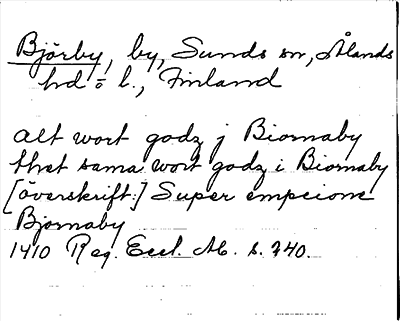 Björby, by, Sunds sn, Ålands
hd o l., Finland
alt wort godz j Biornaby
thet sama wort godz i Biornaby
[överskrift:] Super empcione
Bjornaby
1410 Reg. Eccl. Ab. s. 240.